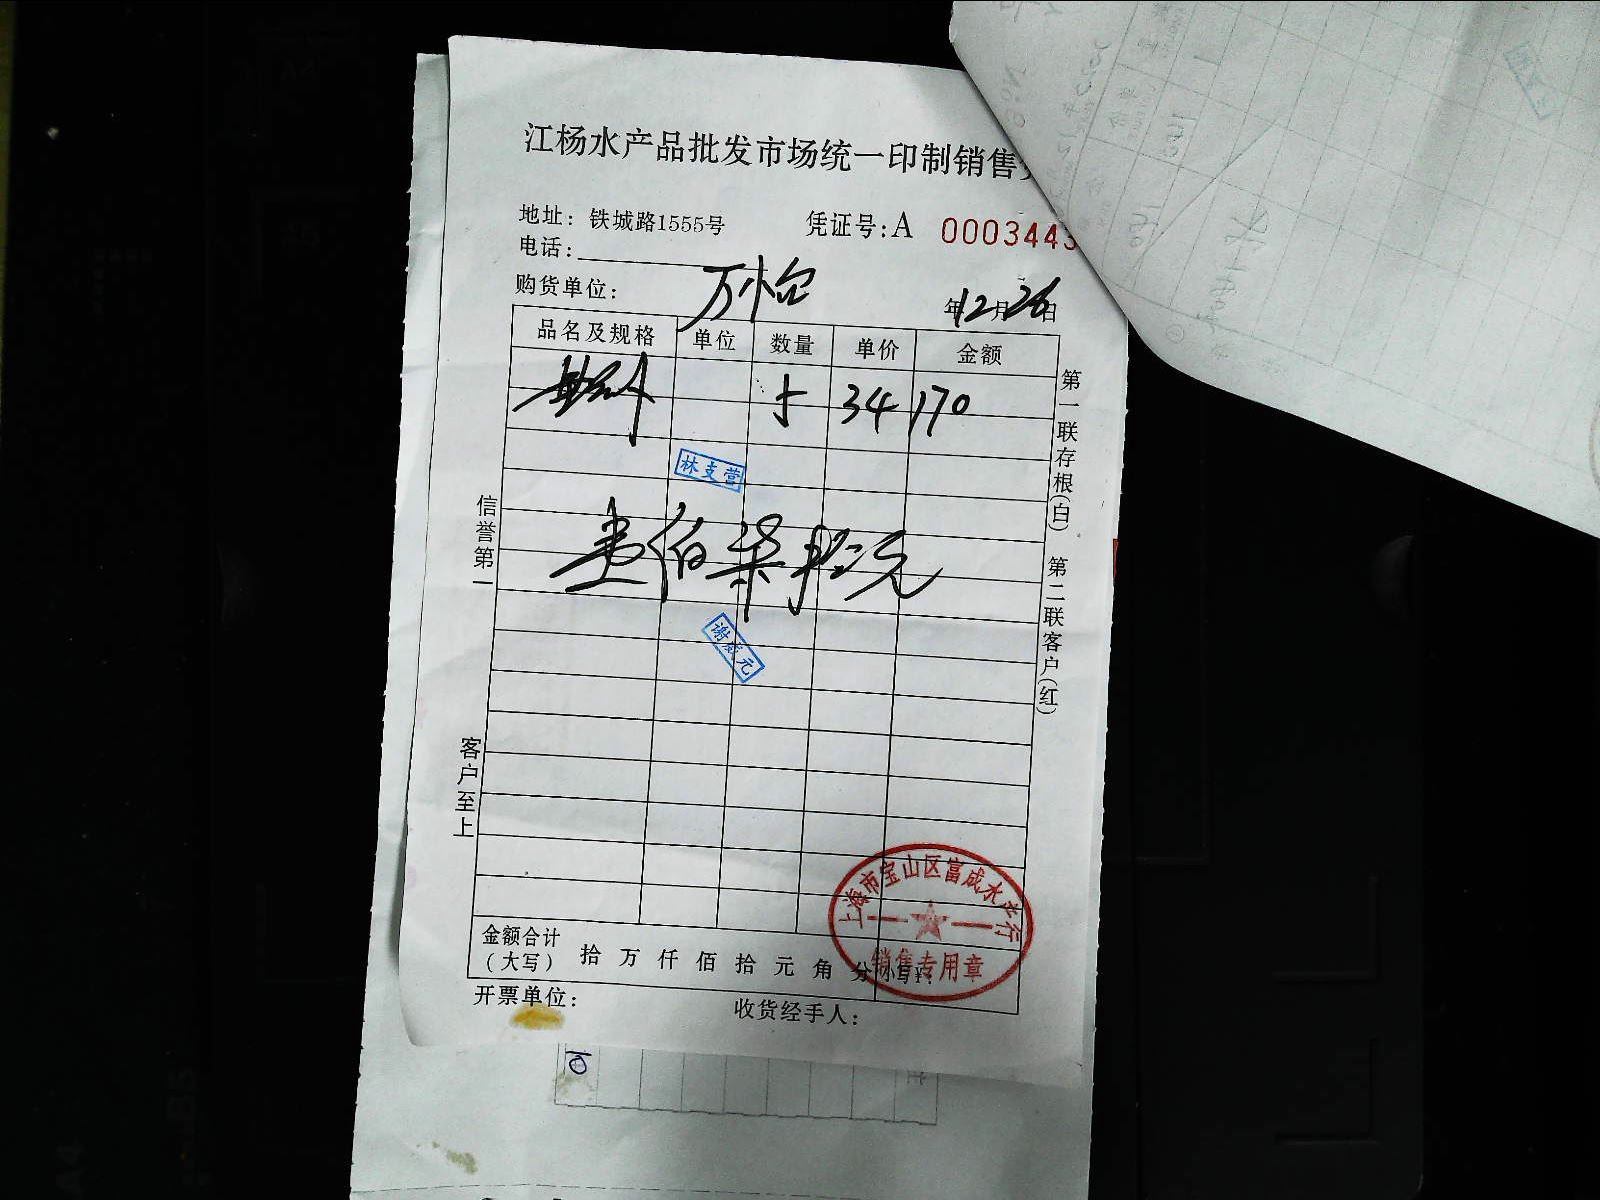 江杨水产品批发市场统一印制销售
地址：铁城路1555号
凭证号：A 0003443
电话：
购货单位：
年12月26日
品名及规格 单位 数量 单价 金额
5 34 170
林支营
壹佰柒拾元
谢成元
信誉第一
客户至上
第一联存根（白） 第二联客户（红）
上海市宝山区富成水产行
销售专用章
金额合计（大写） 拾 万 仟 佰 拾 元 角 分 小写¥：
开票单位： 收货经手人：
10